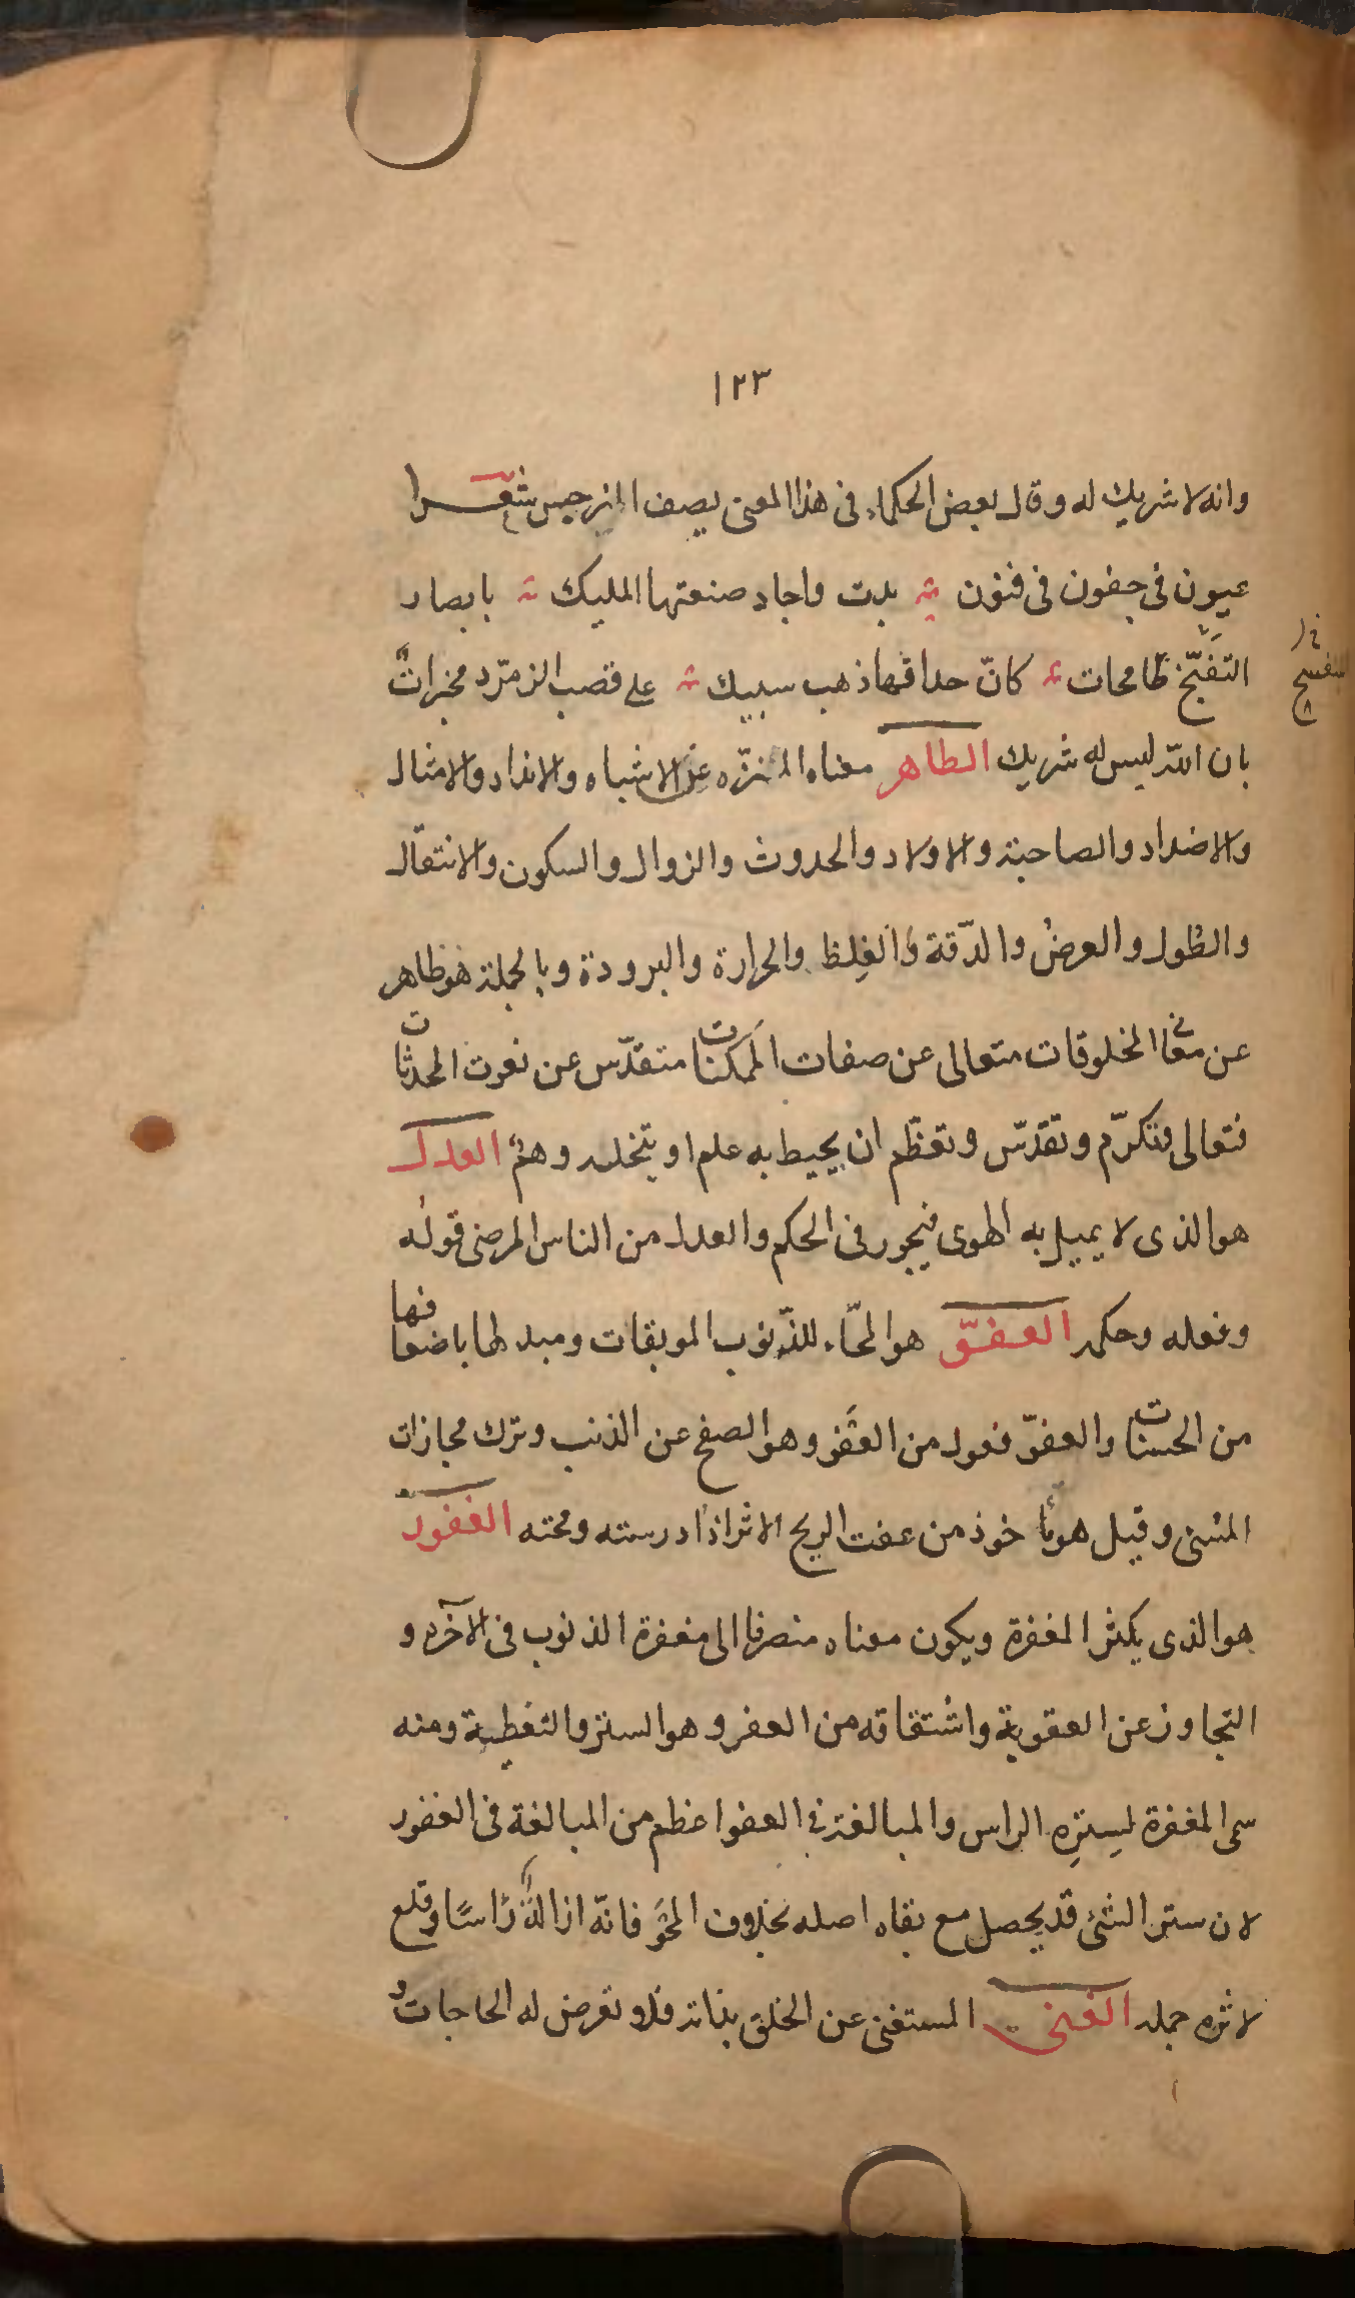 ١٢٣
وانه لا شريك له وقال بعض الحكماء فى هذا المعنى يصف النرجس شعرا
عيون فى جفون فى فنون بدت واجاد صنعتها المليك بابصار
التفنج طامحات كانّ حداقها ذهب سبيك على قصب الزمرّد مخبرات
بان الله ليس له شريك الطاهر معناه المنزّه عن الاشباه والانداد والامثال
والاضداد والصاحبة والاولاد والحدوث والزوال والسكون والانتقال
والطول والعرض والدّقة والغلظ والحرارة والبرودة وبالجملة هو ظاهر
عن معانى المخلوقات متعالى عن صفات الممكنات متقدّس عن نعوت المحدثات
فتعالى وتكرّم وتقدّس وتعظّم ان يحيط به علم او يتخلله وهم العدل
هو الذى لا يميل به الهوى فيجور فى الحكم والعدل من الناس المرضى قوله
وفعله وحكمه العفوّ هو المحّاء للذّنوب الموبقات ومبدلها باضعافها
من الحسنات والعفوّ فعول من العفو وهو الصفح عن الذنب وترك مجازات
المسئ وقيل هو مأخوذ من عفت الريح الاثر اذا درسته ومحته الغفور
هو الذى يكثر المغفرة ويكون معناه منصرفا الى مغفرة الذنوب فى الآخرة و
التجاوز عن العقوبة واشتقاقه من الغفر وهو الستر والتغطية ومنه
سمى المغفرة لسِترِه الراس والمبالغة فى العفو اعظم من المبالغة فى الغفور
لان ستر الشئ قد يحصل مع بقاء اصله بخلاف المحو فانّه ازالة رأسًا وقلع
لاثره جملة الغنى المستغنى عن الخلق بذاته فلا تعرض له الحاجات